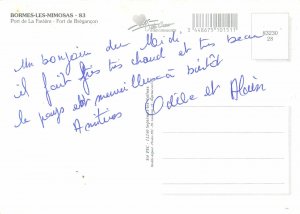 BORMES-LES-MIMOSAS - 83
Port de La Favière - Fort de Brégançon
3 448675 101511
83230
28
Un bonjour du Midi
il fait très très chaud et très beau
le pays est merveilleux à bientôt
Amitiés
Odile et Alain